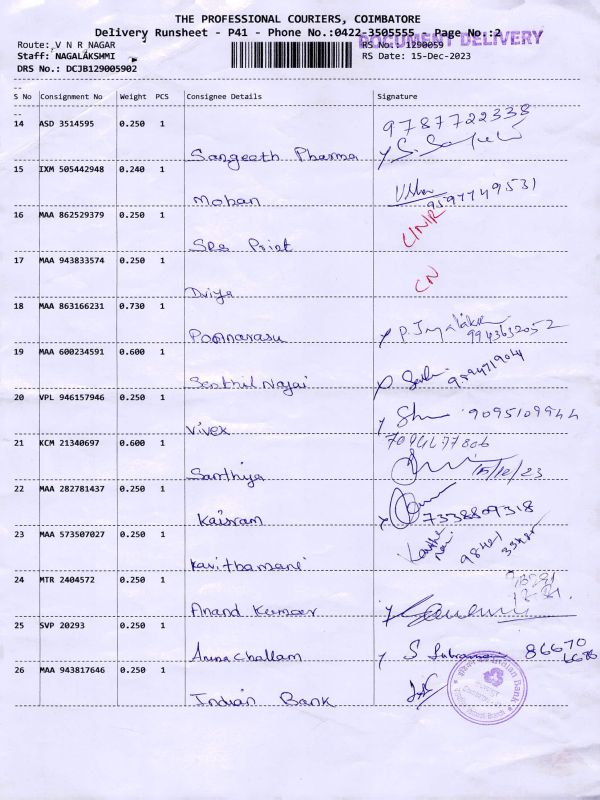 THE PROFESSIONAL COURIERS, COIMBATORE
Delivery Runsheet - P41 - Phone No.:0422-3505555 Page No.:2
DOCUMENT DELIVERY
Route: V N R NAGAR RS No.: 1290059
Staff: NAGALAKSHMI RS Date: 15-Dec-2023
DRS No.: DCJB129005902
S No Consignment No Weight PCS Consignee Details Signature
14 ASD 3514595 0.250 1
9787722338
Sangeeth Pharma
15 IXM 505442948 0.240 1
Mohan 9597749531
16 MAA 862529379 0.250 1
Sps Print
17 MAA 943833574 0.250 1
CN
Dviya
18 MAA 863166231 0.730 1
Ponnarasu 9943632052
19 MAA 600234591 0.600 1
Senthil
20 VPL 946157946 0.250 1
Vivex 9095109944
21 KCM 21340697 0.600 1
Santhiya 15/12/23
22 MAA 282781437 0.250 1
Kaisram 7338809318
23 MAA 573507027 0.250 1
Kavithamani
24 MTR 2404572 0.250 1
Anand Kumar
25 SVP 20293 0.250 1
Arunachallam 86670
26 MAA 943817646 0.250 1
Indian Bank